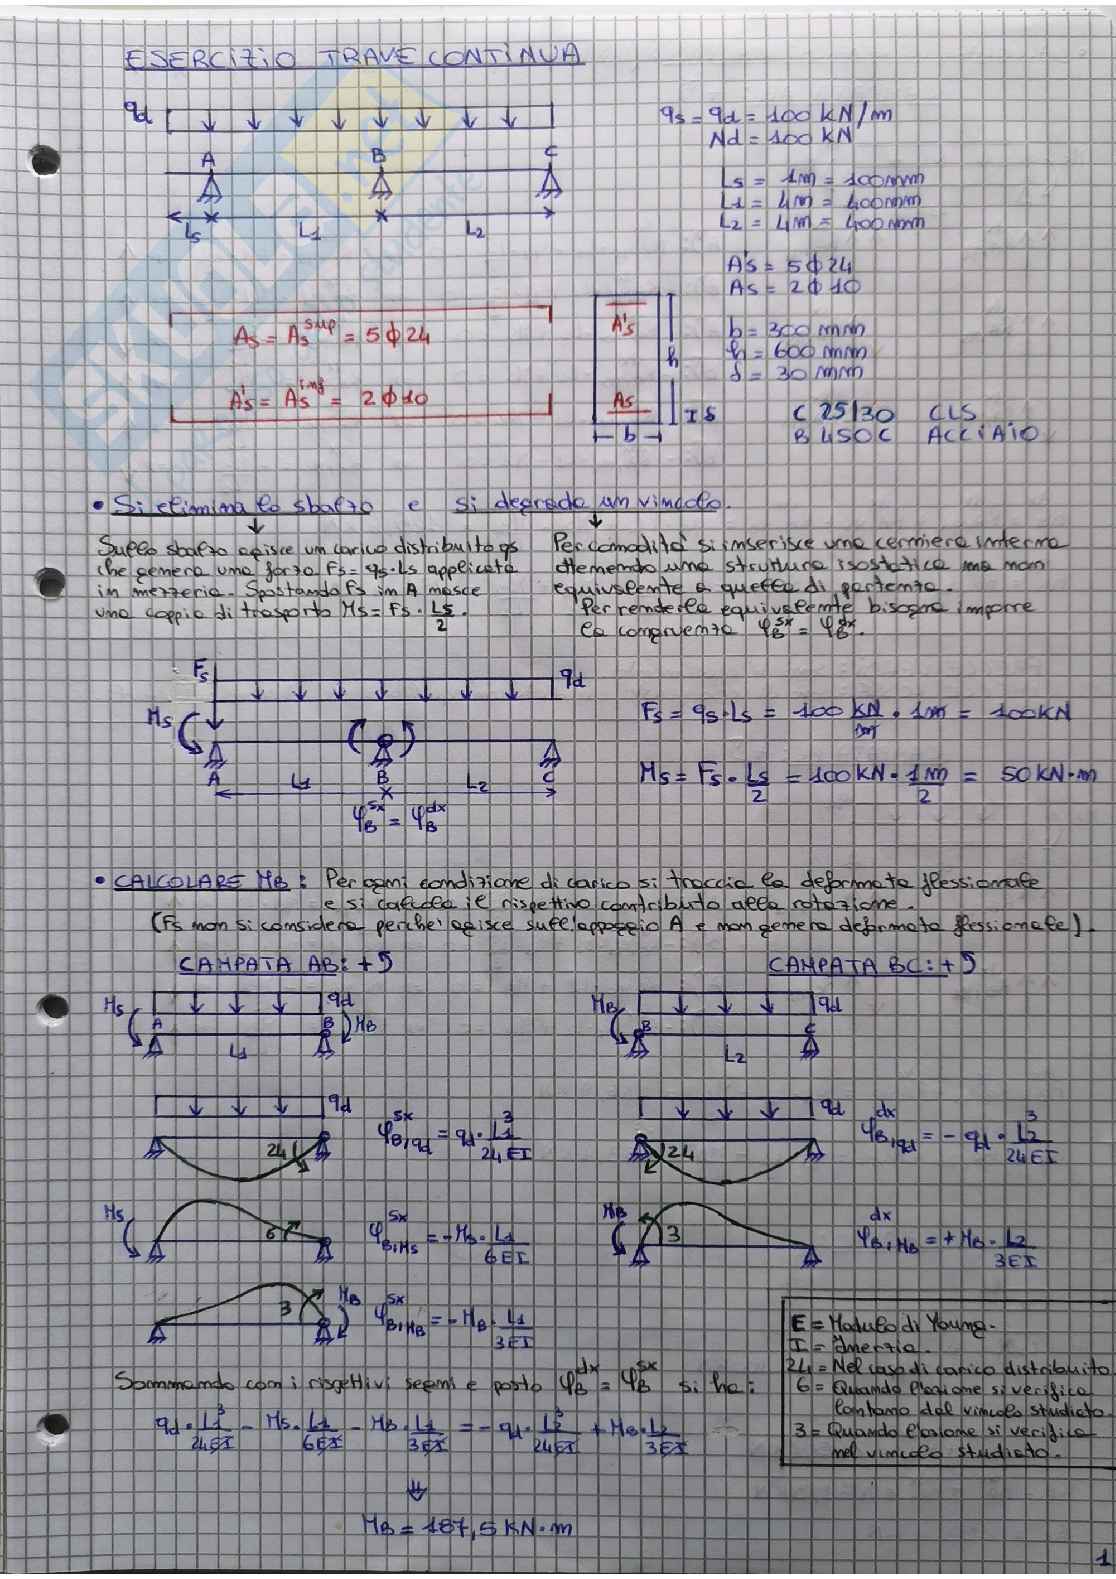 ESERCIZIO TRAVE CONTINUA
qd
A B C
Ls L1 L2
qs = qd = 100 kN/m
Nd = 100 KN
Ls = 1m = 100mm
L1 = 4m = 400mm
L2 = 4m = 400mm
A's = 5ϕ24
As = 2ϕ10
b = 300 mm
h = 600 mm
δ = 30 mm
C 25/30 CLS
B 450C ACCIAIO
As = As^sup = 5ϕ24
A's = As^inf = 2ϕ10
A's
h
As
Iδ
b
• Si elimina lo sbalzo e si degrada un vincolo.
Sullo sbalzo agisce un carico distribuito qs
che genera una forza Fs = qs·Ls applicata
in mezzeria. Spostando Fs in A nasce
una coppia di trasporto Ms = Fs · Ls/2.
Per comodità si inserisce una cerniera interna
ottenendo una struttura isostatica ma non
equivalente a quella di partenza.
Per renderla equivalente bisogna imporre
la congruenza φB^sx = φB^dx.
Fs qd
Ms
A L1 B L2 C
φB^sx = φB^dx
Fs = qs·Ls = 100 KN/m · 1m = 100KN
Ms = Fs · Ls/2 = 100KN · 1m/2 = 50 KN·m
• CALCOLARE MB: Per ogni condizione di carico si traccia la deformata flessionale
e si calcola il rispettivo contributo alla rotazione.
(Fs non si considera perchè agisce sull'appoggio A e non genera deformata flessionale).
CAMPATA AB: +↺
CAMPATA BC: +↺
Ms qd
A B MB
L1
MB qd
B C
L2
qd
24
φB,qd^sx = qd · L1^3/24EI
qd
24
φB,qd^dx = - qd · L2^3/24EI
Ms
6
φB,Ms^sx = -Ms · L1/6EI
MB
3
φB,MB^dx = + MB · L2/3EI
3 MB
φB,MB^sx = - MB · L1/3EI
E = Modulo di Young.
I = Inerzia.
24 = Nel caso di carico distribuito
6 = Quando l'azione si verifica
lontano dal vincolo studiato.
3 = Quando l'azione si verifica
nel vincolo studiato.
Sommando con i rispettivi segni e posto φB^dx = φB^sx si ha:
qd · L1^3/24EI - Ms · L1/6EI - MB · L1/3EI = - qd · L2^3/24EI + MB · L2/3EI
⇓
MB = 187,5 KN·m
1